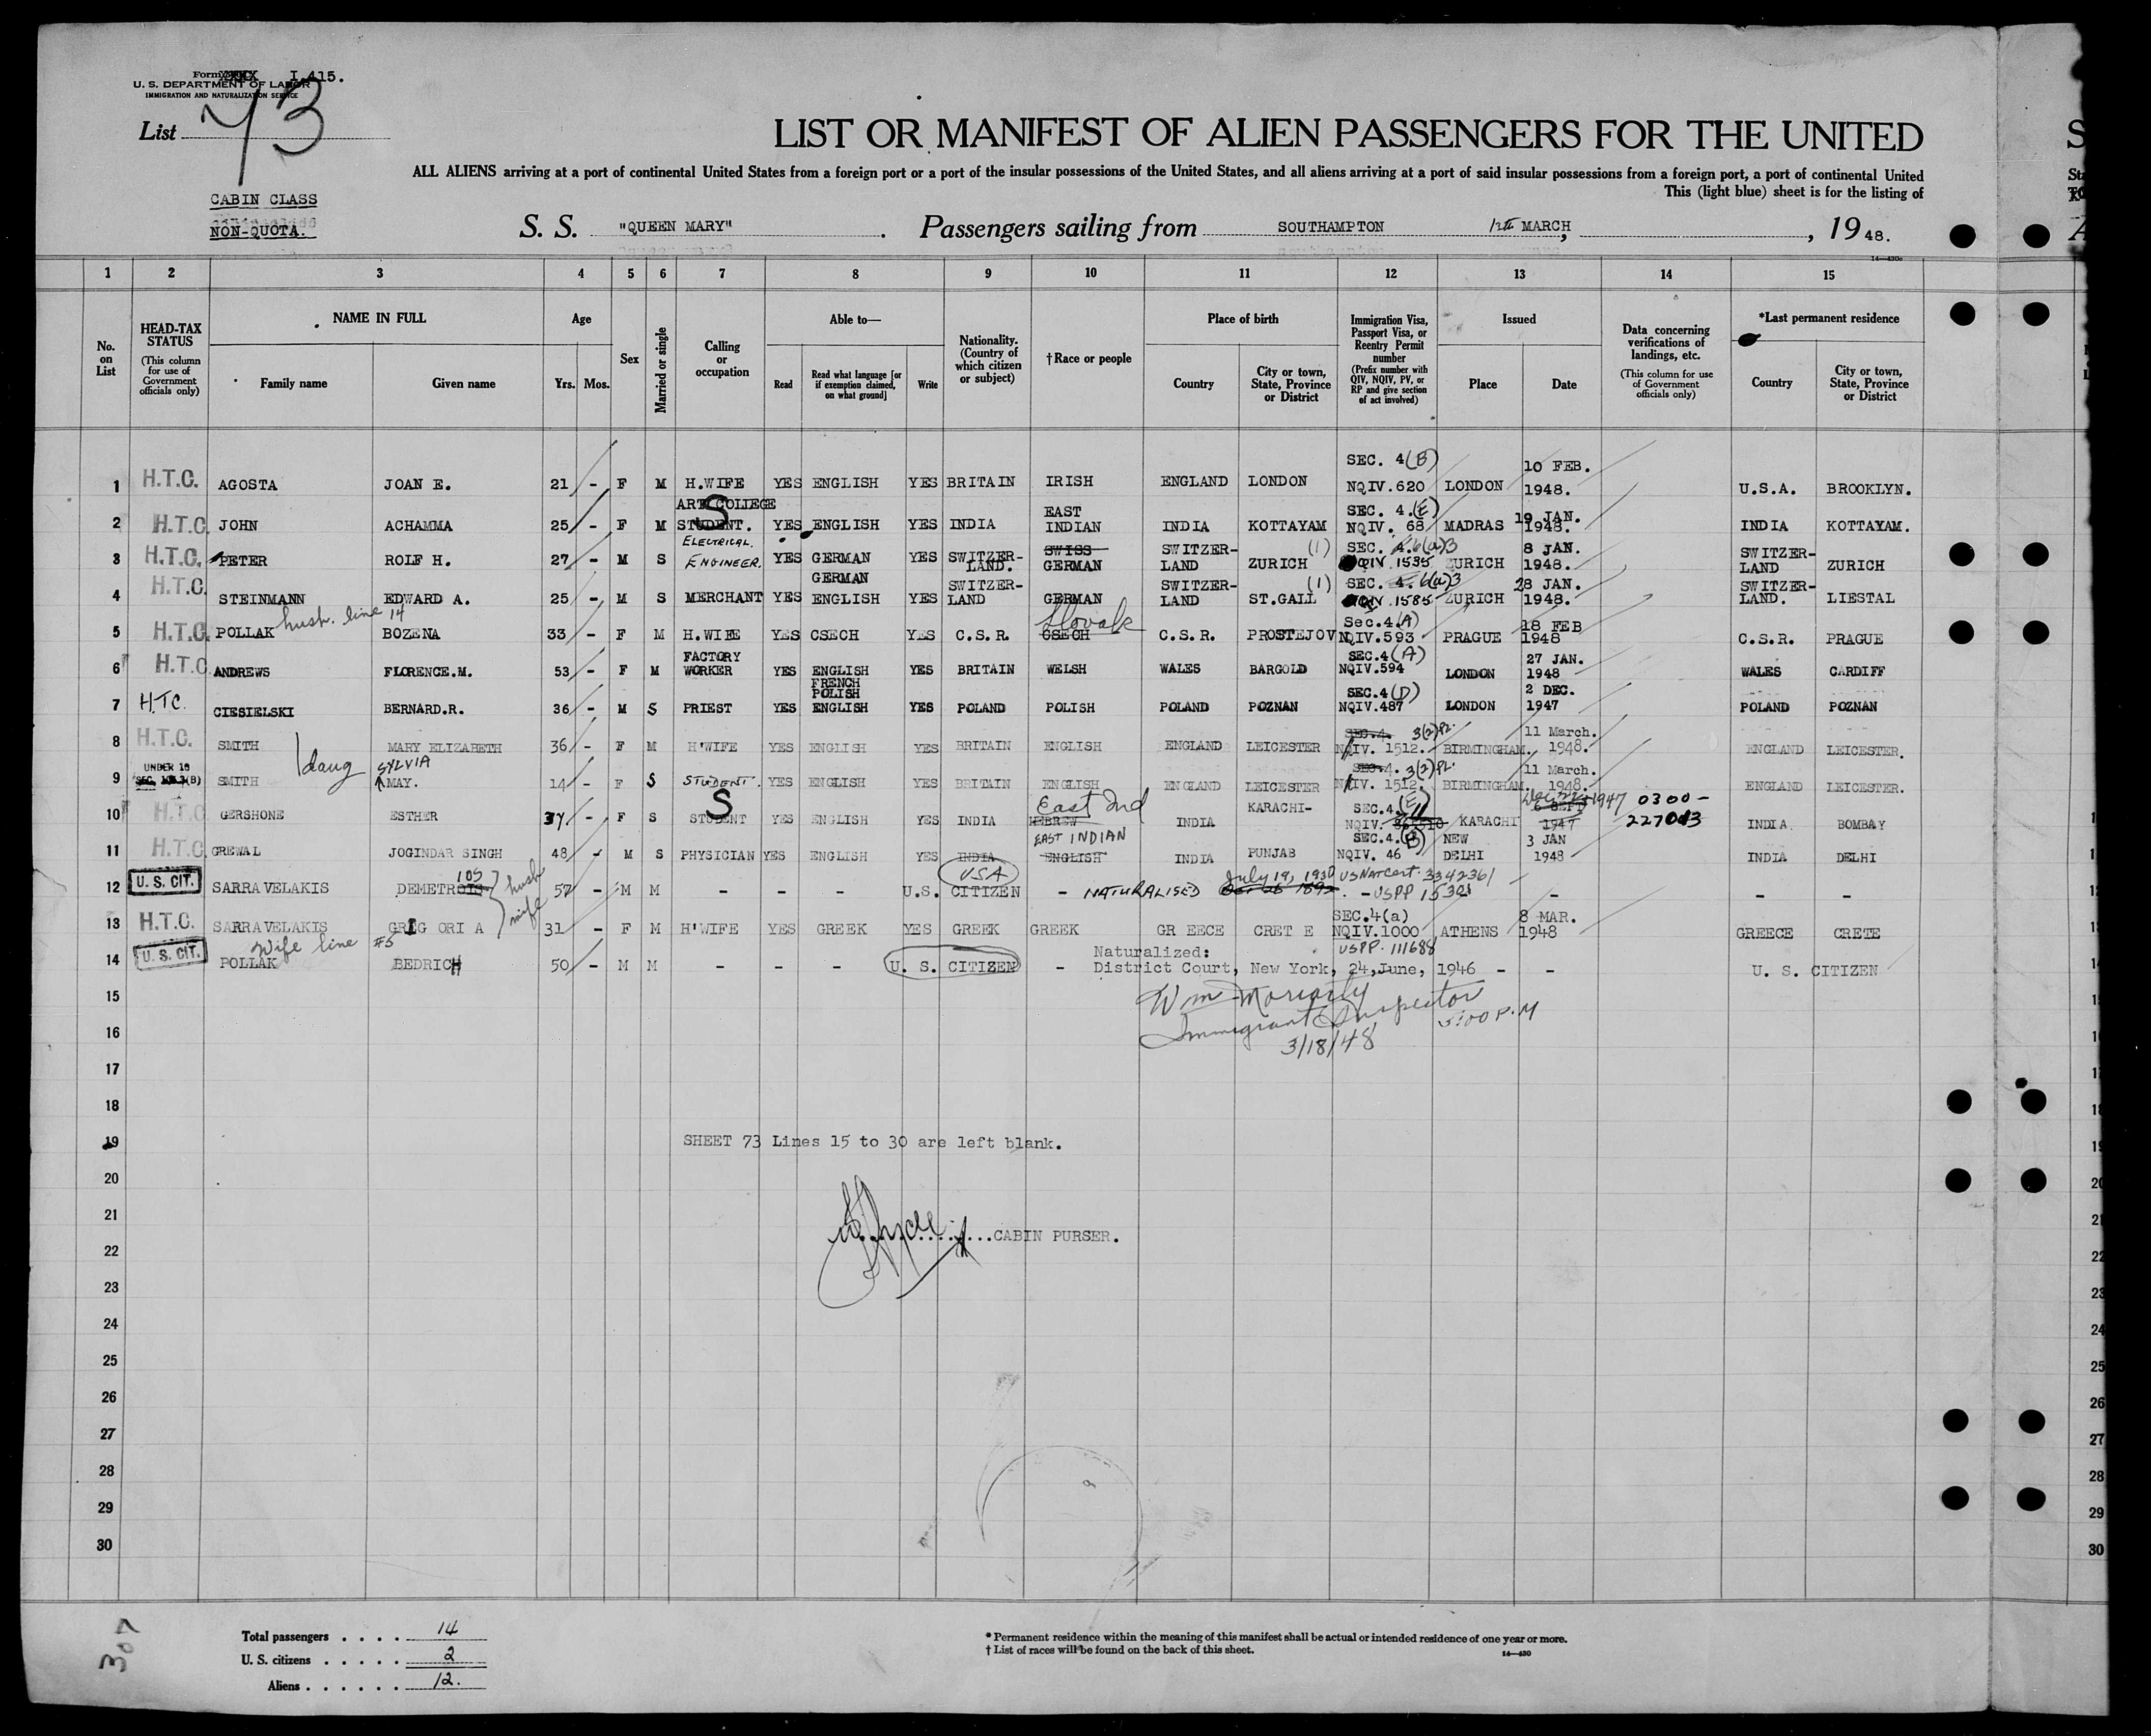 Form I.415.
U. S. DEPARTMENT OF LABOR
IMMIGRATION AND NATURALIZATION SERVICE
List 73
LIST OR MANIFEST OF ALIEN PASSENGERS FOR THE UNITED
ALL ALIENS arriving at a port of continental United States from a foreign port or a port of the insular possessions of the United States, and all aliens arriving at a port of said insular possessions from a foreign port, a port of continental United
This (light blue) sheet is for the listing of
CABIN CLASS
NON-QUOTA.
S. S. "QUEEN MARY" . Passengers sailing from SOUTHAMPTON 12th MARCH, , 19 48.
14—430c
1 2 3 4 5 6 7 8 9 10 11 12 13 14 15
No. on List
HEAD-TAX STATUS (This column for use of Government officials only)
NAME IN FULL Family name Given name
Age Yrs. Mos.
Sex
Married or single
Calling or occupation
Able to— Read Read what language [or if exemption claimed, on what ground] Write
Nationality. (Country of which citizen or subject)
†Race or people
Place of birth Country City or town, State, Province or District
Immigration Visa, Passport Visa, or Reentry Permit number (Prefix number with QIV, NQIV, PV, or RP and give section of act involved)
Issued Place Date
Data concerning verifications of landings, etc. (This column for use of Government officials only)
*Last permanent residence Country City or town, State, Province or District
1 H.T.C. AGOSTA JOAN E. 21 - F M H.WIFE YES ENGLISH YES BRITAIN IRISH ENGLAND LONDON SEC. 4(B) NQIV.620 LONDON 10 FEB. 1948. U.S.A. BROOKLYN.
2 H.T.C. JOHN ACHAMMA 25 - F M ART COLLEGE STUDENT. S YES ENGLISH YES INDIA EAST INDIAN INDIA KOTTAYAM SEC. 4.(E) NQIV. 68 MADRAS 19 JAN. 1948. INDIA KOTTAYAM.
3 H.T.C. PETER ROLF H. 27 - M S ELECTRICAL. ENGINEER. YES GERMAN YES SWITZER-LAND. SWISS GERMAN SWITZER-LAND ZURICH (1) SEC. 4.6(a)3 QIV 1535 ZURICH 8 JAN. 1948. SWITZER-LAND ZURICH
4 H.T.C. STEINMANN EDWARD A. 25 - M S MERCHANT YES GERMAN ENGLISH YES SWITZER-LAND GERMAN SWITZER-LAND ST.GALL (1) SEC. 4. 6(a)3 QIV 1585 ZURICH 28 JAN. 1948. SWITZER-LAND. LIESTAL
5 H.T.C. POLLAK husb. line 14 BOZENA 33 - F M H.WIFE YES CSECH YES C.S.R. Slovak CSECH C.S.R. PROSTEJOV Sec.4.(A) NQIV.593 PRAGUE 18 FEB 1948 C.S.R. PRAGUE
6 H.T.C. ANDREWS FLORENCE.M. 53 - F M FACTORY WORKER YES ENGLISH YES BRITAIN WELSH WALES BARGOLD SEC.4(A) NQIV.594 LONDON 27 JAN. 1948 WALES CARDIFF
7 H.T.C. CIESIELSKI BERNARD.R. 36 - M S PRIEST YES FRENCH POLISH ENGLISH YES POLAND POLISH POLAND POZNAN SEC.4(D) NQIV.487 LONDON 2 DEC. 1947 POLAND POZNAN
8 H.T.C. SMITH MARY ELIZABETH 36 - F M H'WIFE YES ENGLISH YES BRITAIN ENGLISH ENGLAND LEICESTER SEC.4. 3(2)PL. IV. 1512. BIRMINGHAM. 11 March. 1948. ENGLAND LEICESTER.
9 UNDER 16 SMITH daug SYLVIA MAY. 14 - F S STUDENT. YES ENGLISH YES BRITAIN ENGLISH ENGLAND LEICESTER SEC.4. 3(2)PL. IV. 1512. BIRMINGHAM. 11 March. 1948. ENGLAND LEICESTER.
10 H.T.C GERSHONE ESTHER 37 - F S STUDENT S YES ENGLISH YES INDIA East Ind HEBREW INDIA KARACHI- SEC.4.(E) NQIV. 11 KARACHI Dec 22 1947 6 SEPT 1947 0300-227043 INDIA BOMBAY
11 H.T.C. GREWAL JOGINDAR SINGH 48 - M S PHYSICIAN YES ENGLISH YES INDIA EAST INDIAN ENGLISH INDIA PUNJAB SEC.4.(B) NQIV. 46 NEW DELHI 3 JAN 1948 INDIA DELHI
12 U. S. CIT. SARRAVELAKIS DEMETROIS IOS husb 57 - M M - - - U.S. CITIZEN USA - NATURALISED July 19, 1930 US Nat Cert. 3342361 - USPP 15301 - - -
13 H.T.C. SARRAVELAKIS GRIGORI A wife 31 - F M H'WIFE YES GREEK YES GREEK GREEK GREECE CRETE SEC.4(a) NQIV.1000 ATHENS 8 MAR. 1948 GREECE CRETE
14 U. S. CIT. POLLAK Wife line #5 BEDRICH 50 - M M - - - U. S. CITIZEN - Naturalized: District Court, New York, 24, June, 1946 USPP. 111688 - - U. S. CITIZEN
15 Wm Moriarity
16 Immigrant Inspector 5:00 P.M
3/18/48
17
18
19 SHEET 73 Lines 15 to 30 are left blank.
20
21
22 CABIN PURSER.
23
24
25
26
27
28
29
30
307
Total passengers . . . . 14
U. S. citizens . . . . . 2
Aliens . . . . . . 12.
* Permanent residence within the meaning of this manifest shall be actual or intended residence of one year or more.
† List of races will be found on the back of this sheet.
14—430